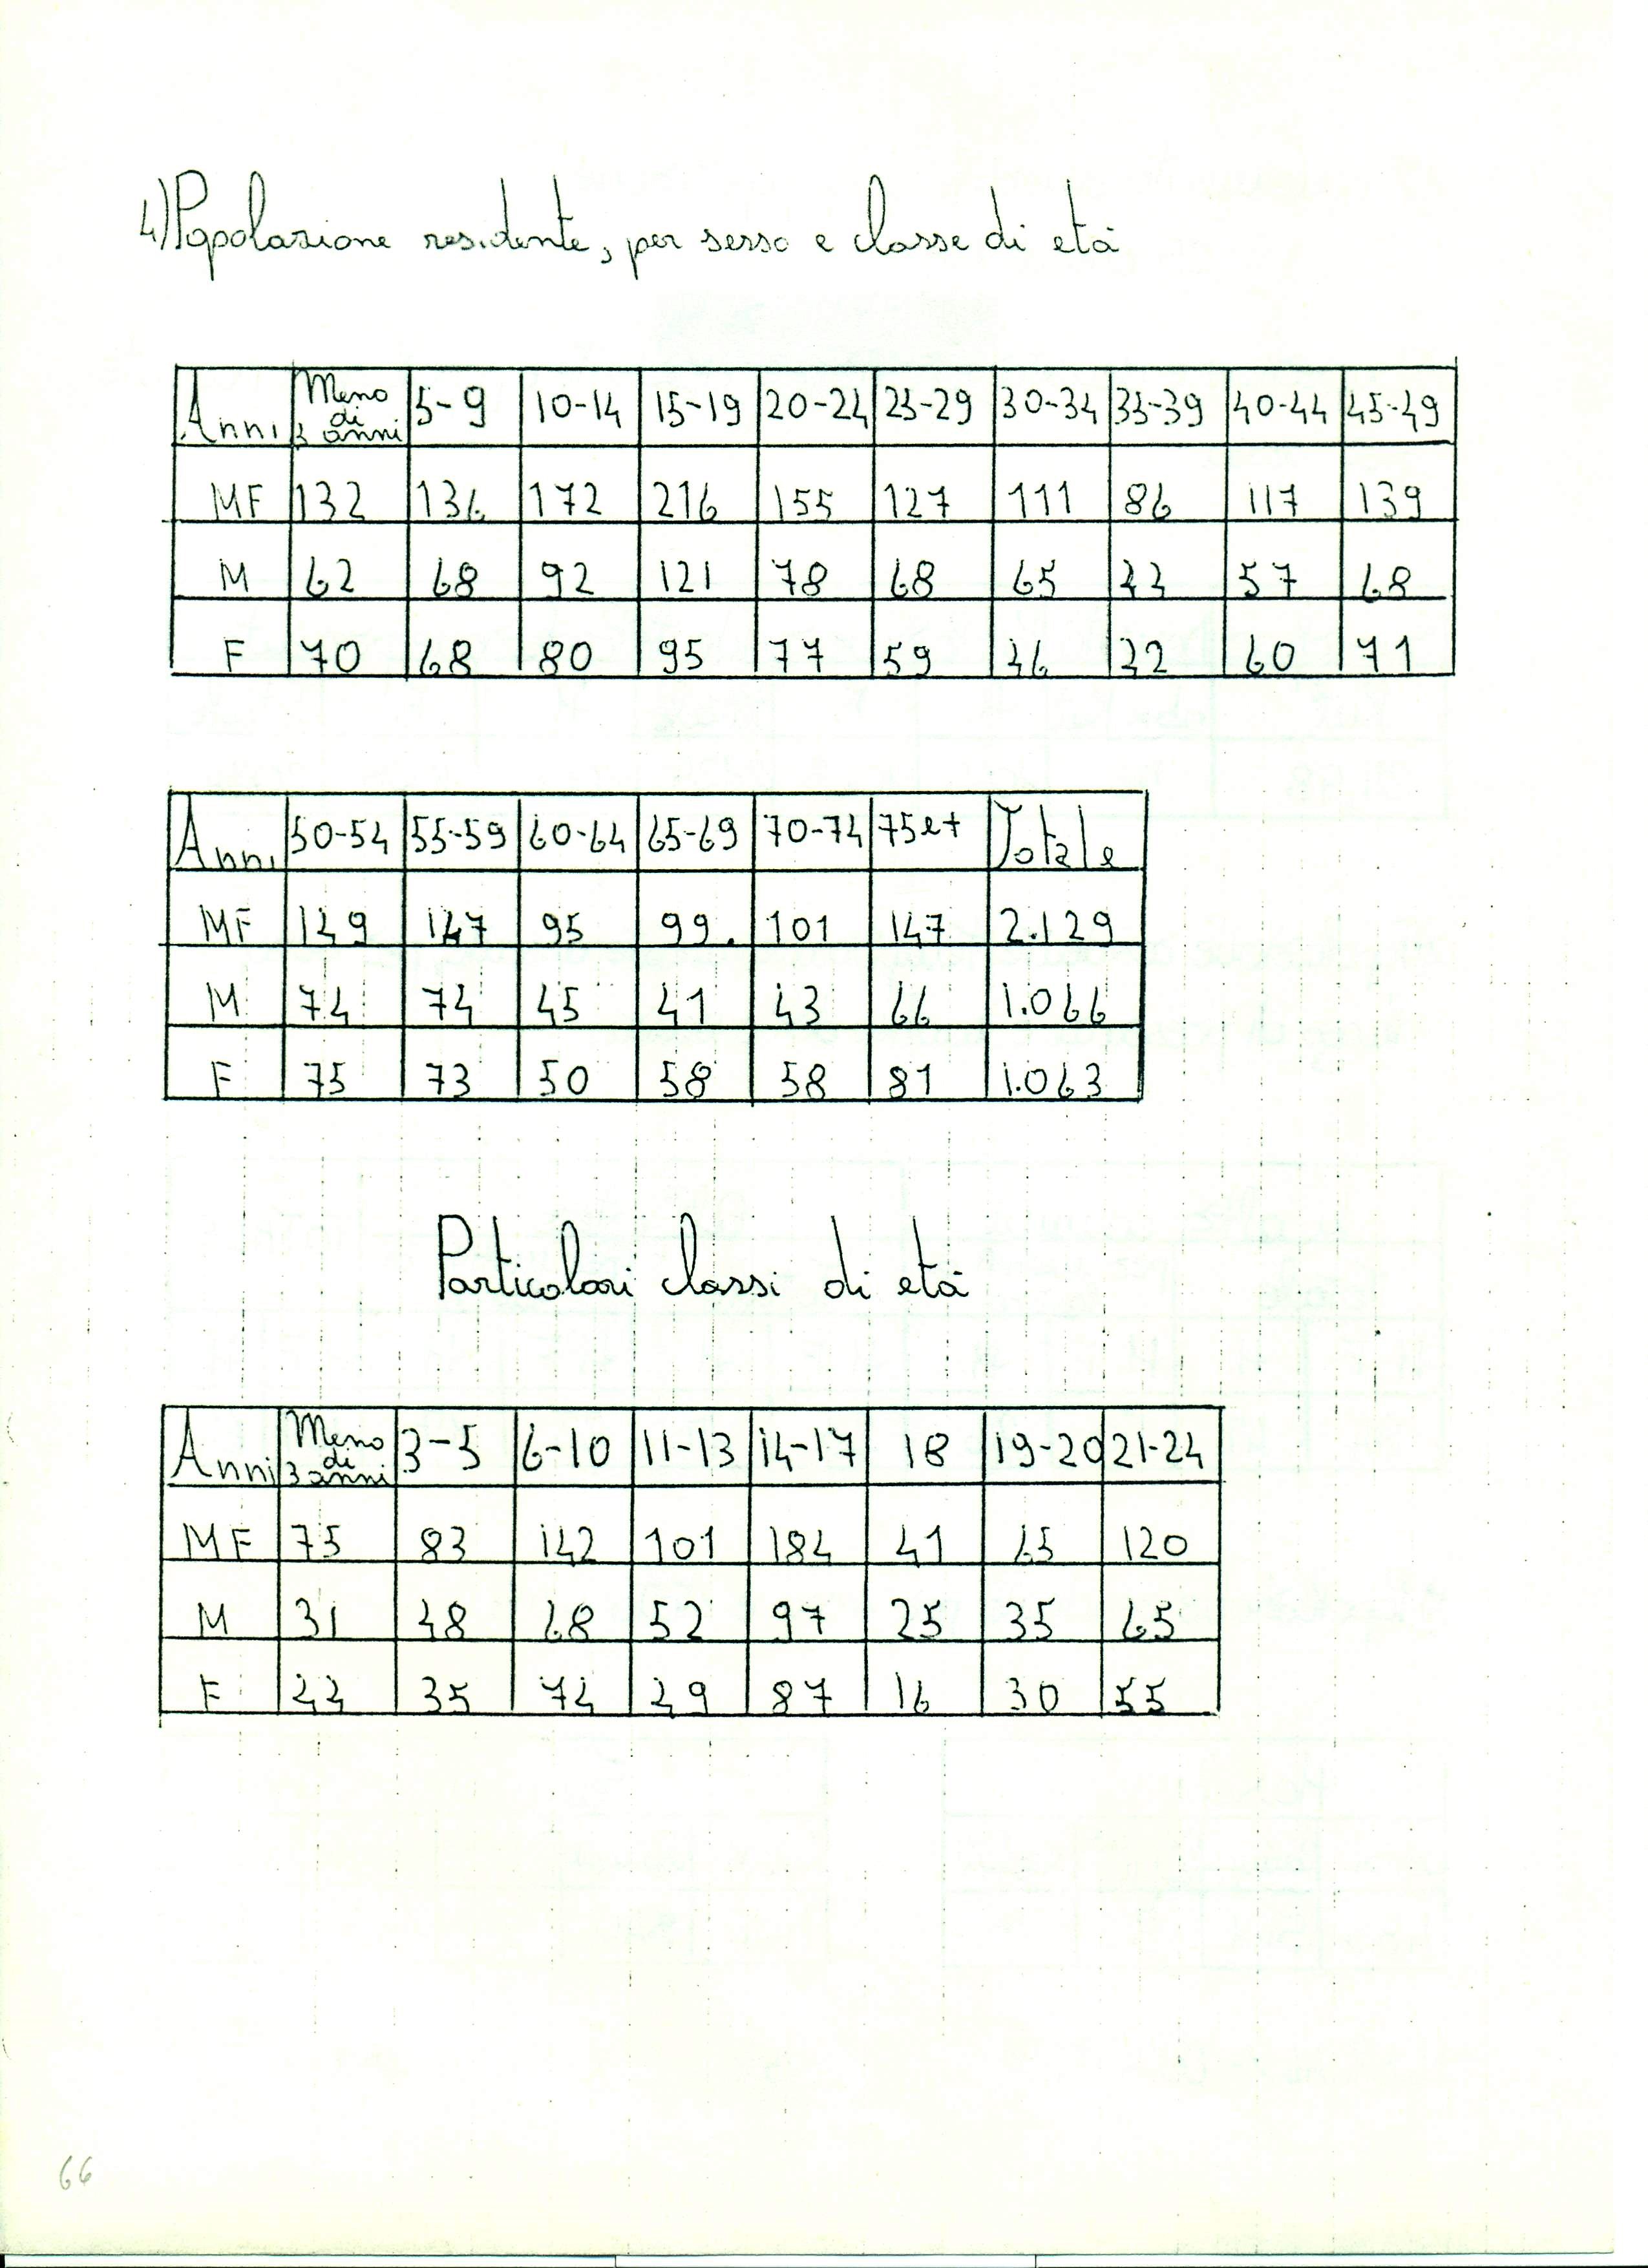 4) Popolazione residente, per sesso e classe di età
Anni Meno di 5 anni 5-9 10-14 15-19 20-24 25-29 30-34 35-39 40-44 45-49
MF 132 136 172 216 155 127 111 86 117 139
M 62 68 92 121 78 68 65 44 57 68
F 70 68 80 95 77 59 46 42 60 71
Anni 50-54 55-59 60-64 65-69 70-74 75 e+ Totale
MF 149 147 95 99. 101 147 2.129
M 74 74 45 41 43 66 1.066
F 75 73 50 58 58 81 1.063
Particolari classi di età
Anni Meno di 3 anni 3-5 6-10 11-13 14-17 18 19-20 21-24
MF 75 83 142 101 184 41 65 120
M 31 48 68 52 97 25 35 65
F 44 35 74 49 87 16 30 55
66